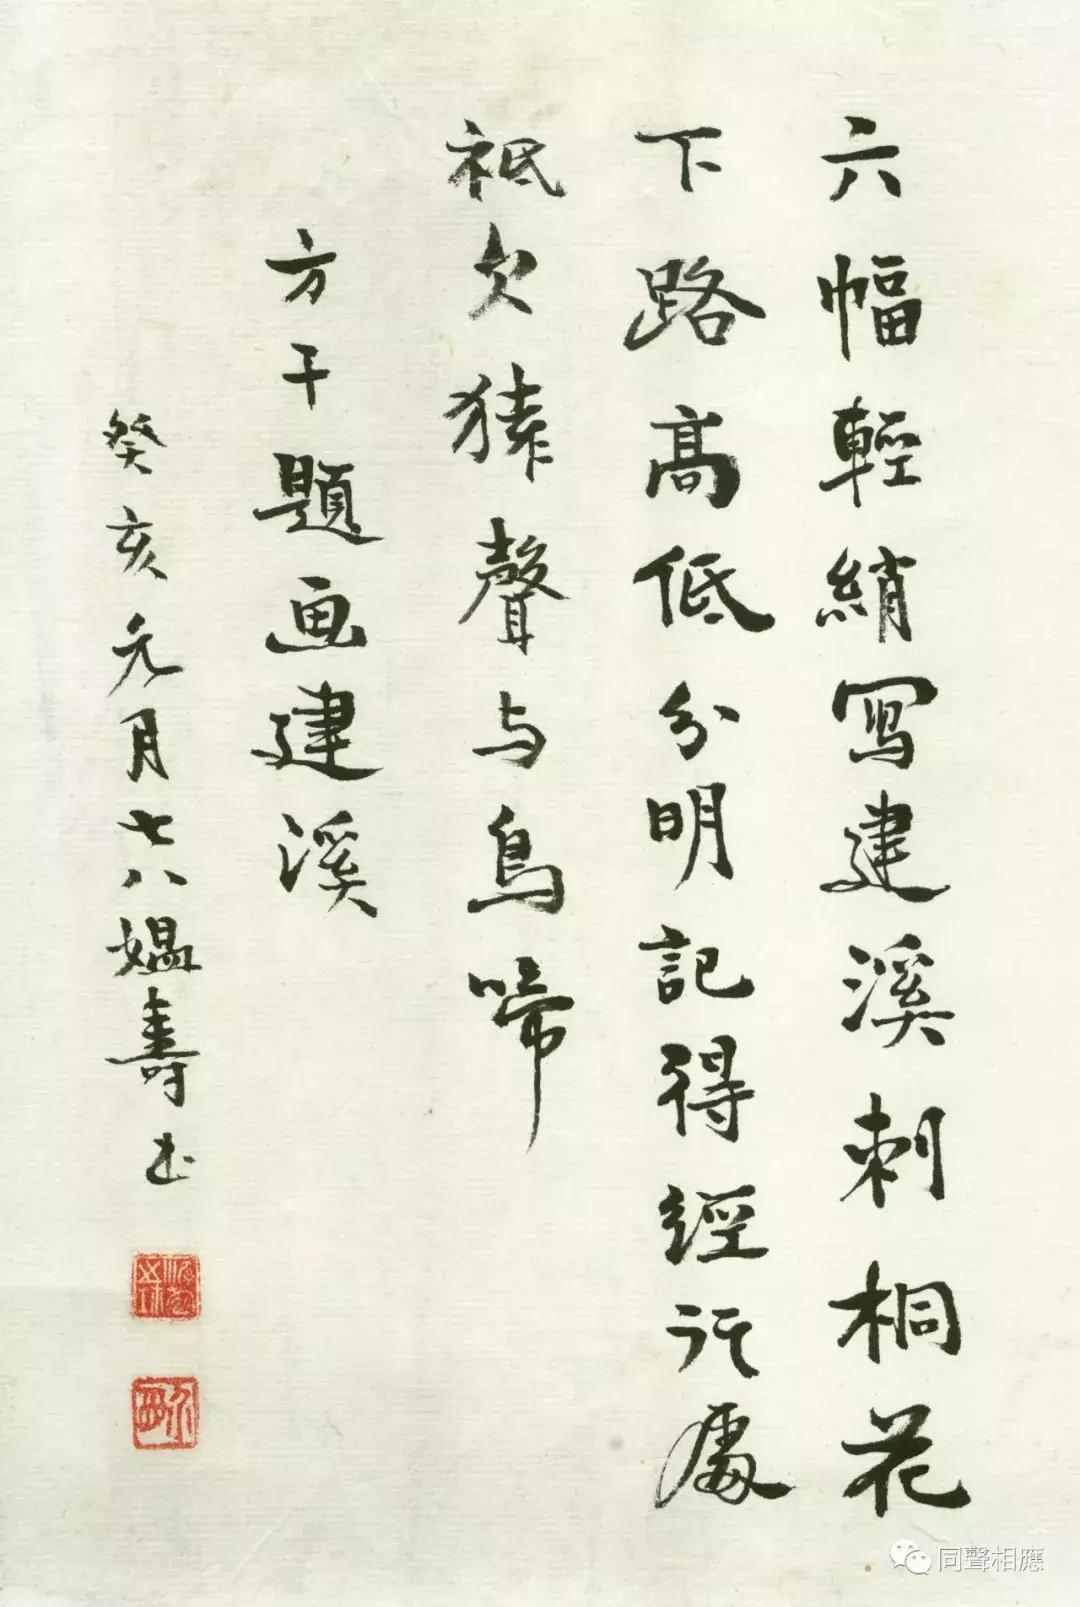 六幅輕綃寫建溪刺桐花
下路高低分明記得經行處
祗欠猿聲与鳥啼
方干題画建溪
癸亥元月七八媪壽书
同聲相應